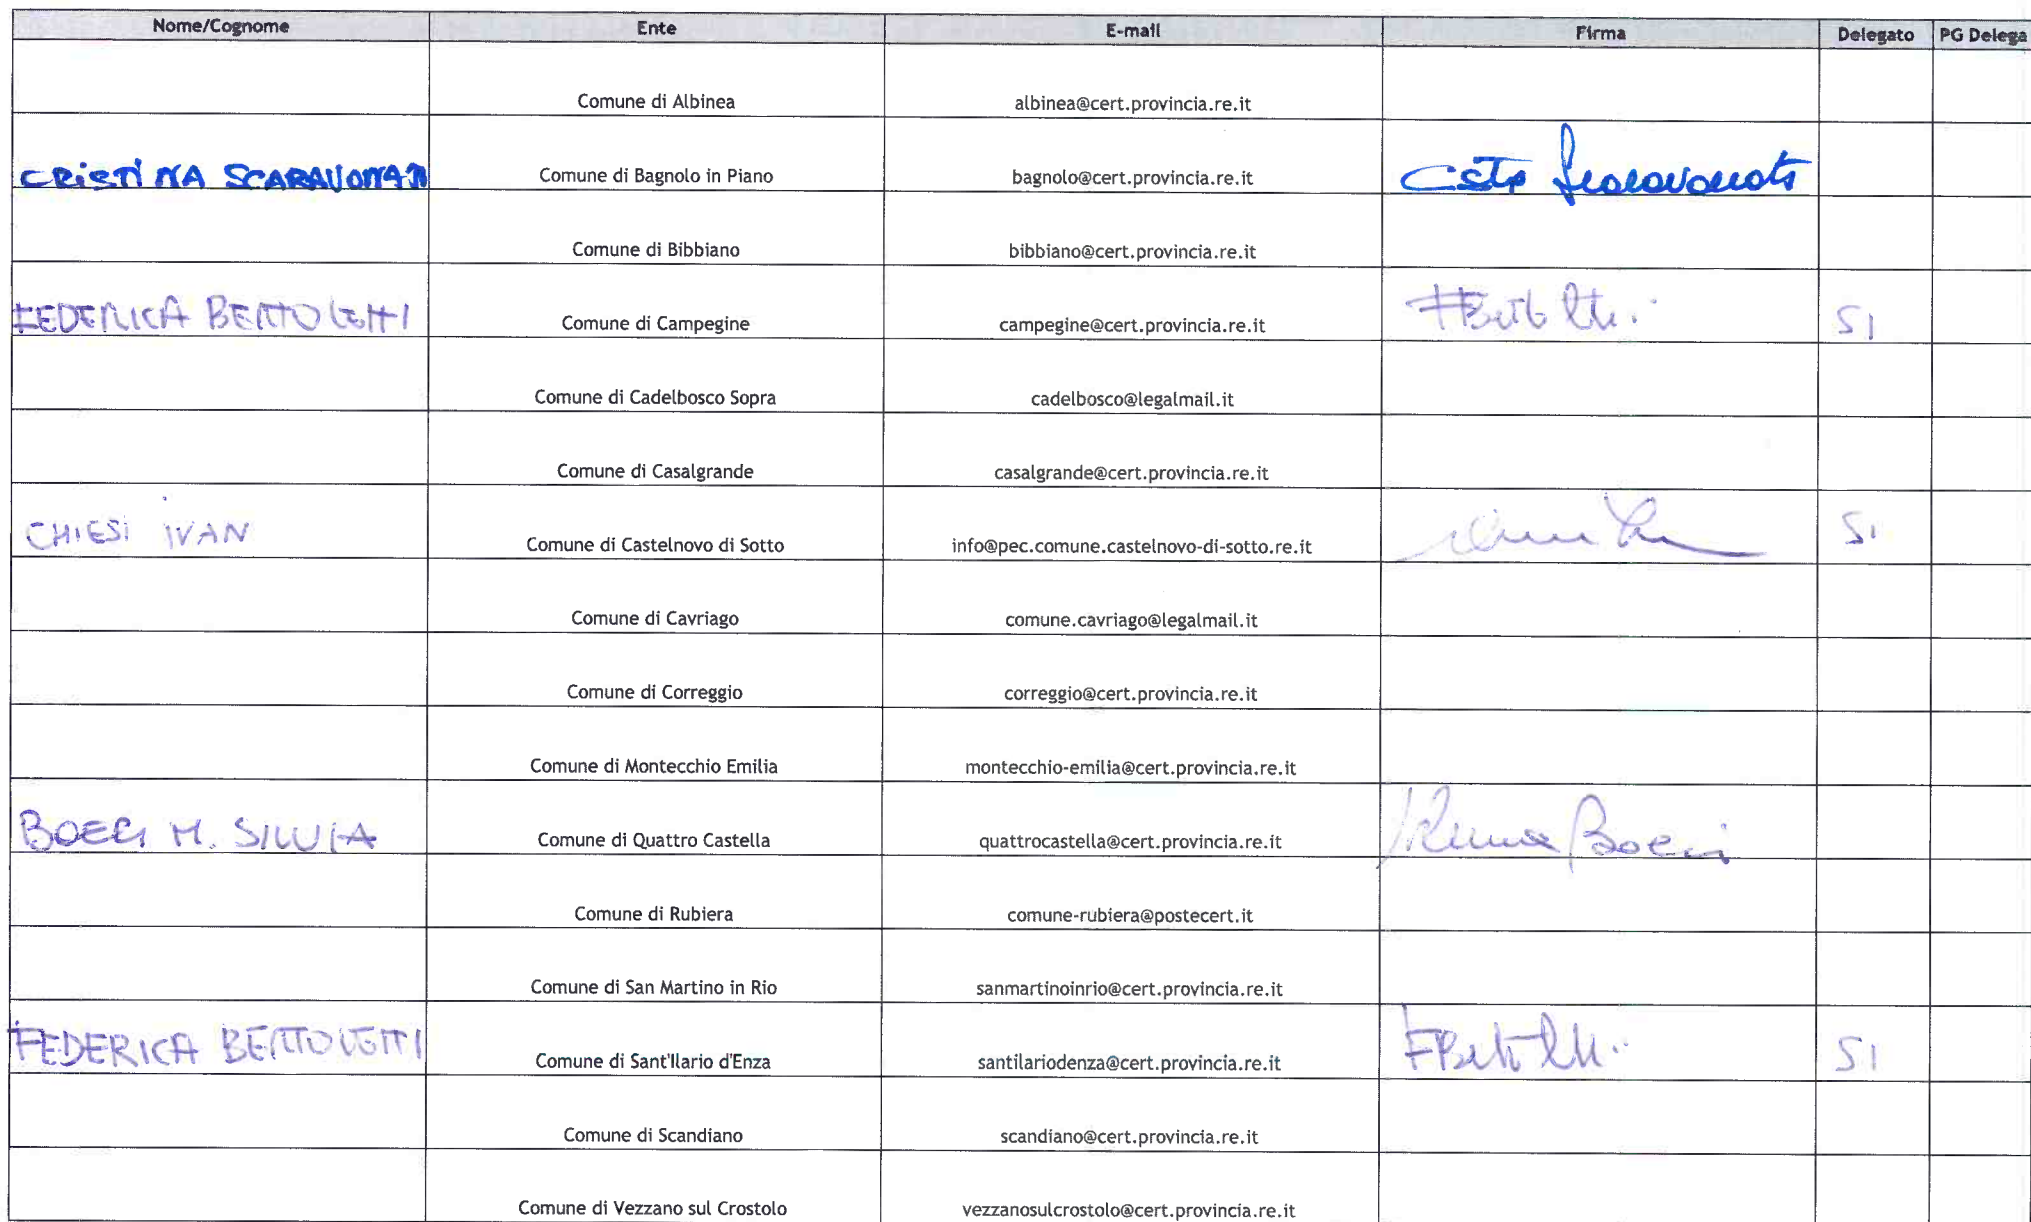 Nome/Cognome Ente E-mail Firma Delegato PG Delega
Comune di Albinea albinea@cert.provincia.re.it
CRISTINA Comune di Bagnolo in Piano bagnolo@cert.provincia.re.it
Comune di Bibbiano bibbiano@cert.provincia.re.it
FEDERICA BERTOLETTI Comune di Campegine campegine@cert.provincia.re.it SI
Comune di Cadelbosco Sopra cadelbosco@legalmail.it
Comune di Casalgrande casalgrande@cert.provincia.re.it
CHIESI IVAN Comune di Castelnovo di Sotto info@pec.comune.castelnovo-di-sotto.re.it SI
Comune di Cavriago comune.cavriago@legalmail.it
Comune di Correggio correggio@cert.provincia.re.it
Comune di Montecchio Emilia montecchio-emilia@cert.provincia.re.it
BOERI M. SILVIA Comune di Quattro Castella quattrocastella@cert.provincia.re.it
Comune di Rubiera comune-rubiera@postecert.it
Comune di San Martino in Rio sanmartinoinrio@cert.provincia.re.it
FEDERICA BERTOLETTI Comune di Sant'Ilario d'Enza santilariodenza@cert.provincia.re.it SI
Comune di Scandiano scandiano@cert.provincia.re.it
Comune di Vezzano sul Crostolo vezzanosulcrostolo@cert.provincia.re.it